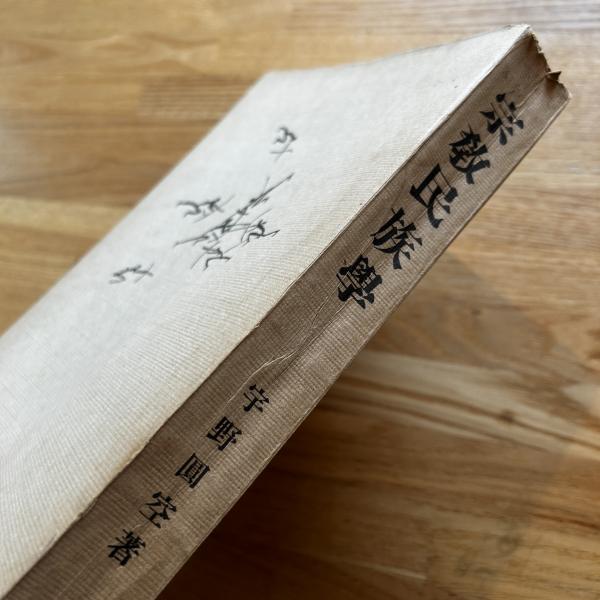 宗教民族學
宇野圓空著